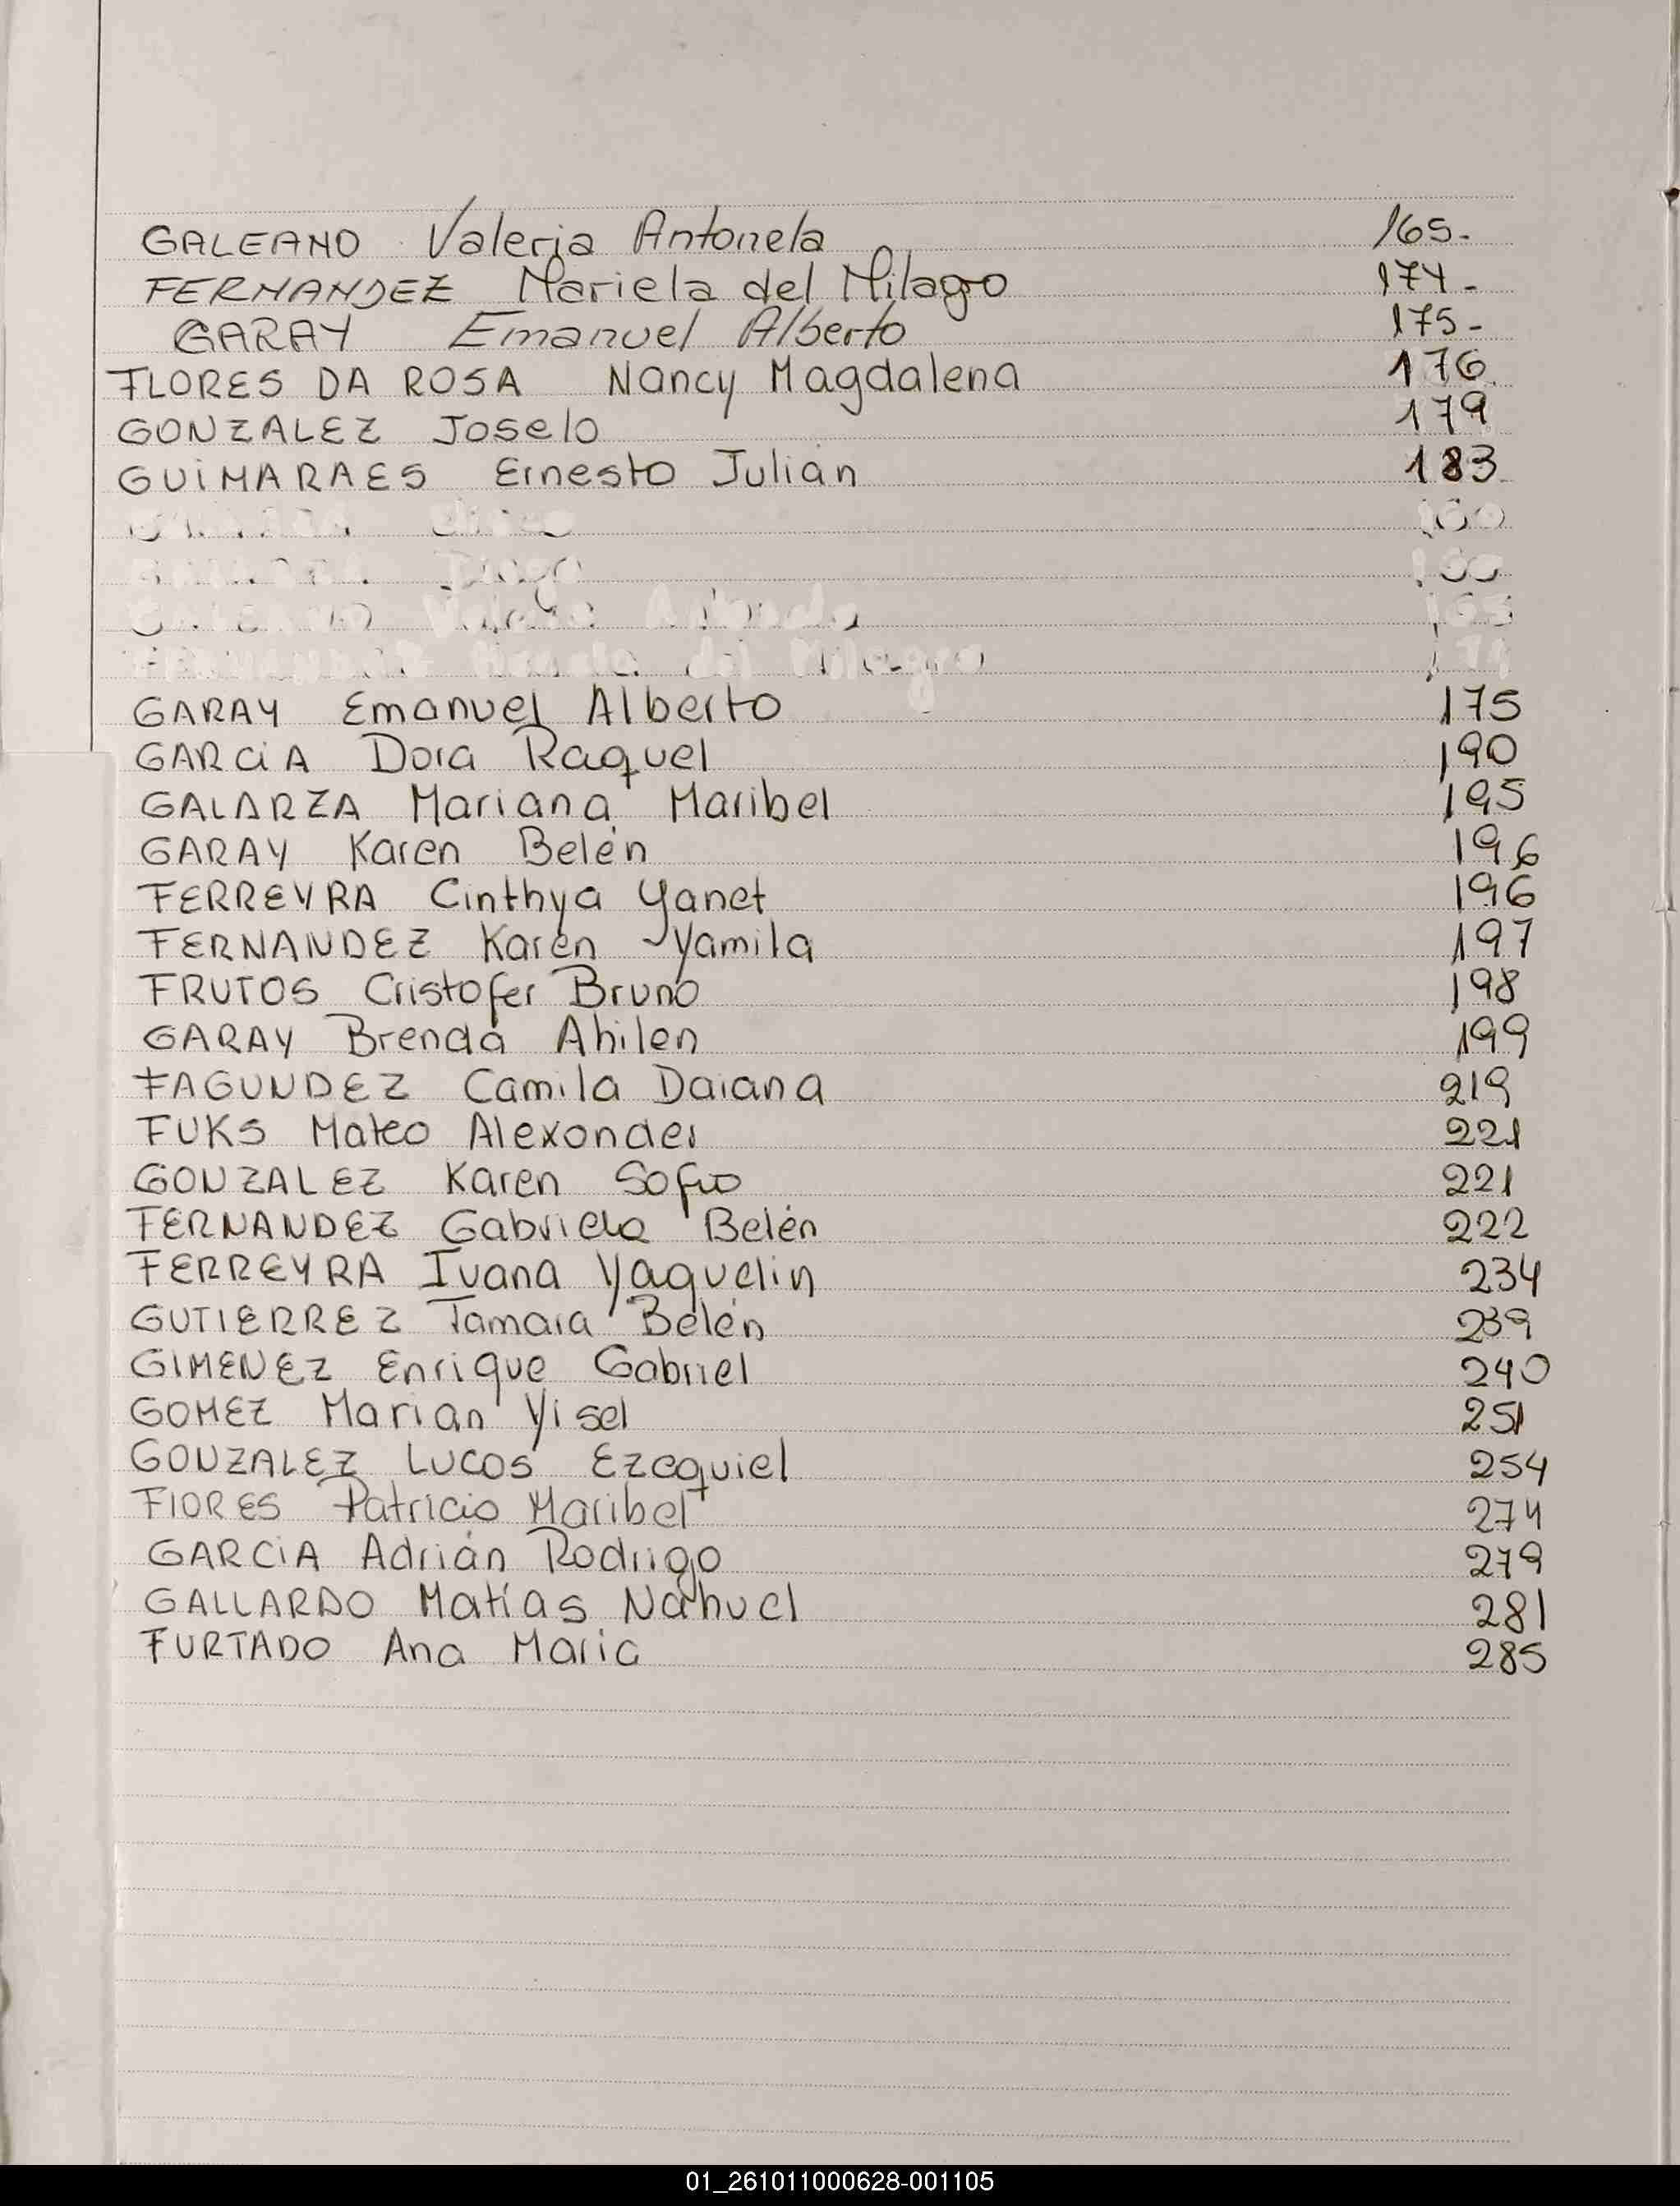 GALEANO Valeria Antonela 165.
FERNANDEZ Mariela del Milagro 174.
GARAY Emanuel Alberto 175.
FLORES DA ROSA Nancy Magdalena 176.
GONZALEZ Joselo 179
GUIMARAES Ernesto Julián 183
GARAY Emanuel Alberto 175
GARCIA Dora Raquel 190
GALARZA Mariana Maribel 195
GARAY Karen Belén 196
FERREYRA Cinthya Yanet 196
FERNANDEZ Karen Yamila 197
FRUTOS Cristofer Bruno 198
GARAY Brenda Ahilen 199
FAGUNDEZ Camila Daiana 219
FUKS Mateo Alexander 221
GONZALEZ Karen Sofia 221
FERNANDEZ Gabriela Belén 222
FERREYRA Ivana Yaquelin 234
GUTIERREZ Tamara Belén 239
GIMENEZ Enrique Gabriel 240
GOMEZ Marian Yisel 251
GONZALEZ Lucas Ezequiel 254
FlORES Patricia Maribel 274
GARCIA Adrián Rodrigo 279
GALLARDO Matías Nahuel 281
FURTADO Ana Maria 285
01_261011000628-001105